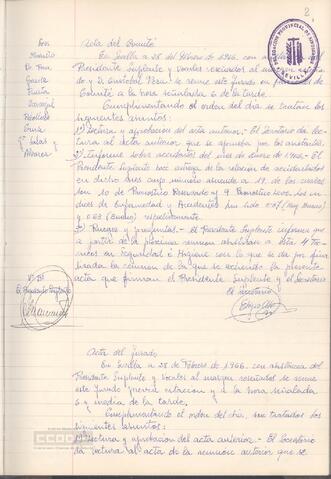 2
Acta del Comité
En Sevilla a 28 de Febrero de 1966, con asistencia del
Presidente Suplente y Vocales reseñados al margen
y D. Cristobal se reune este Jurado en
Comité a la hora señalada 6 de la tarde.
Cumplimentando el orden del día se tratan los
siguientes asuntos:
1º) Lectura y aprobación del acta anterior.- El Secretario da lec-
tura al acta anterior que se aprueba por los asistentes.
2º) Informe sobre accidentes del mes de Enero de 1966.- El
Presidente Suplente hace entrega de la relación de accidentados
en dicho mes cuyo número asciende a 19 de los cuales
son 10 de Pronostico Reservado y 9 Pronostico Leve. Los in-
dices de Enfermedad y Accidentes han sido
y 0.63 respectivamente.
3º) Ruegos y preguntas.- El Presidente Suplente informa que
a partir de la próxima reunión asistirán a esta 4 Téc-
nicos en Seguridad e Higiene con lo que se da por fina-
lizada la reunión de la que se extiende la presente
acta que firman el Presidente Suplente y el Secretario
El Secretario
Garcia
Alvarez
Vº Bº
El Presidente Suplente
Acta del Jurado
En Sevilla a 28 de Febrero de 1966, con asistencia del
Presidente Suplente y Vocales al margen reseñados se reune
este Jurado previa citación y a la hora señalada
6 y media de la tarde.
Cumplimentando el orden del día, son tratados los
siguientes asuntos:
1º) Lectura y aprobación del acta anterior.- El Secretario
da lectura al acta de la reunión anterior que se
CCOO